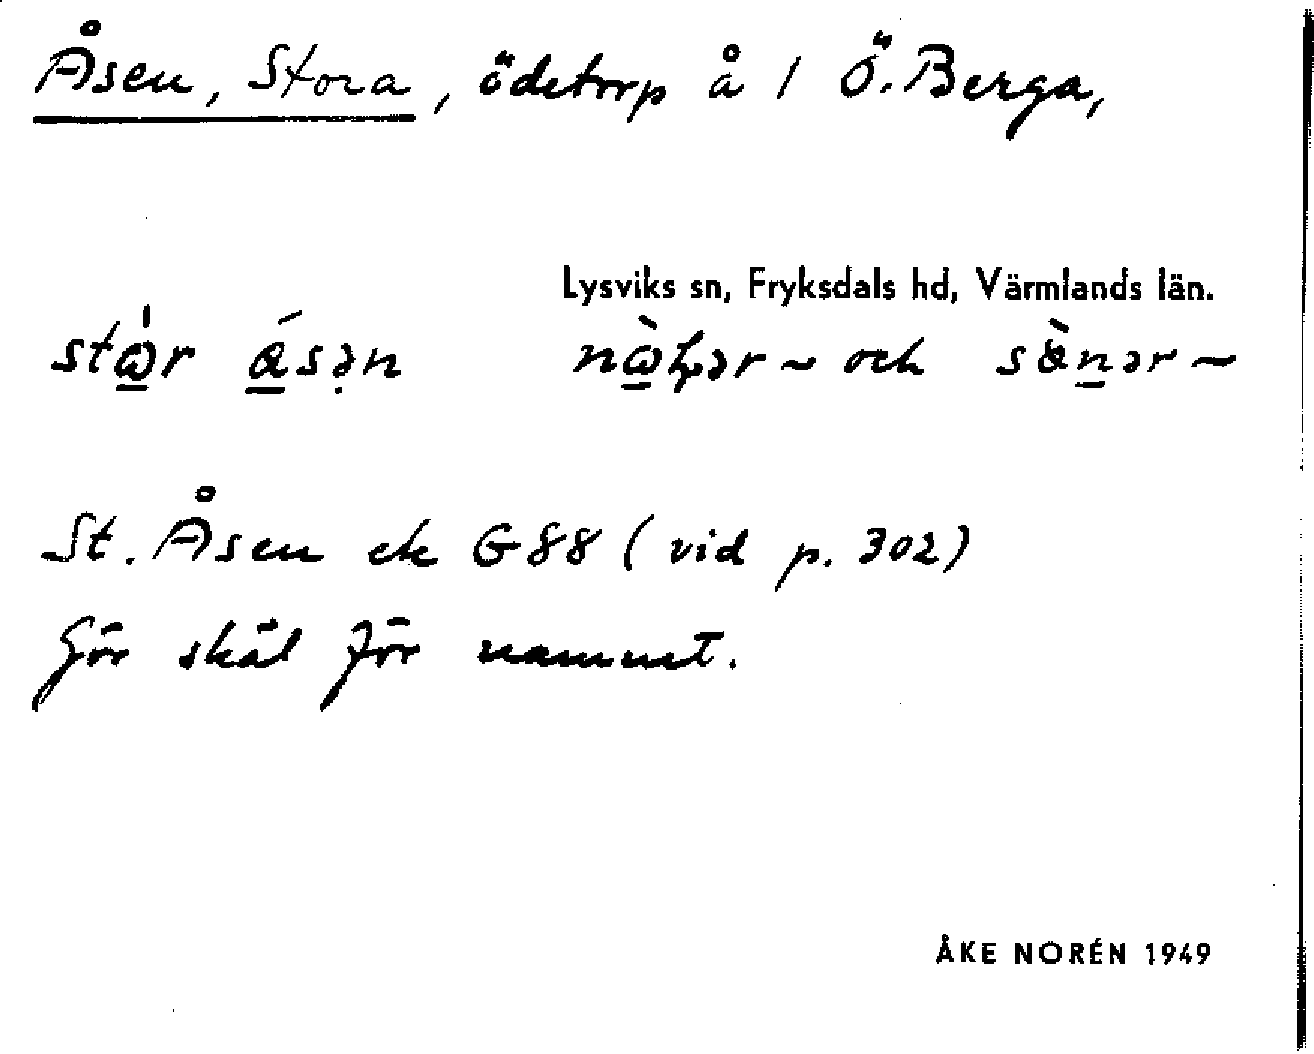 Åsen, Stora, ödetorp å 1 Ö. Berga,
Lysviks sn, Fryksdals hd, Värmlands län.
och
St. Åsen ek G 88 (vid p. 302)
Gör skäl för namnet.
ÅKE NORÉN 1949